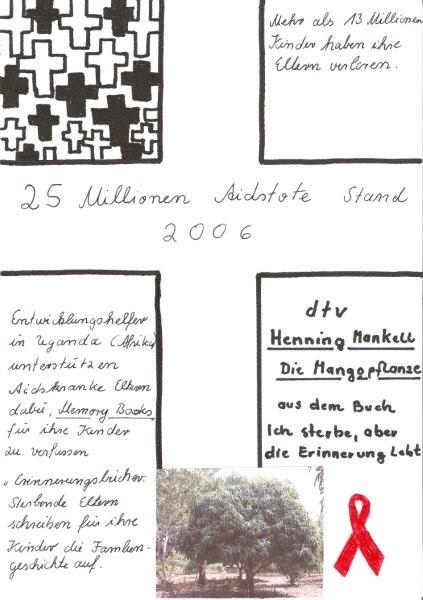 Mehr als 13 Millionen
Kinder haben ihre
Eltern verloren.
25 Millionen Aidstote Stand
2006
Entwicklungshelfer
in Uganda (Afrika)
unterstützen
Aidskranke Eltern
dabei, Memory Books
für ihre Kinder
zu verfassen
"Erinnerungsbücher:
Sterbende Eltern
schreiben für ihre
Kinder die Familien-
geschichte auf.
dtv
Henning Mankell
Die Mangopflanze
aus dem Buch
Ich sterbe, aber
die Erinnerung lebt